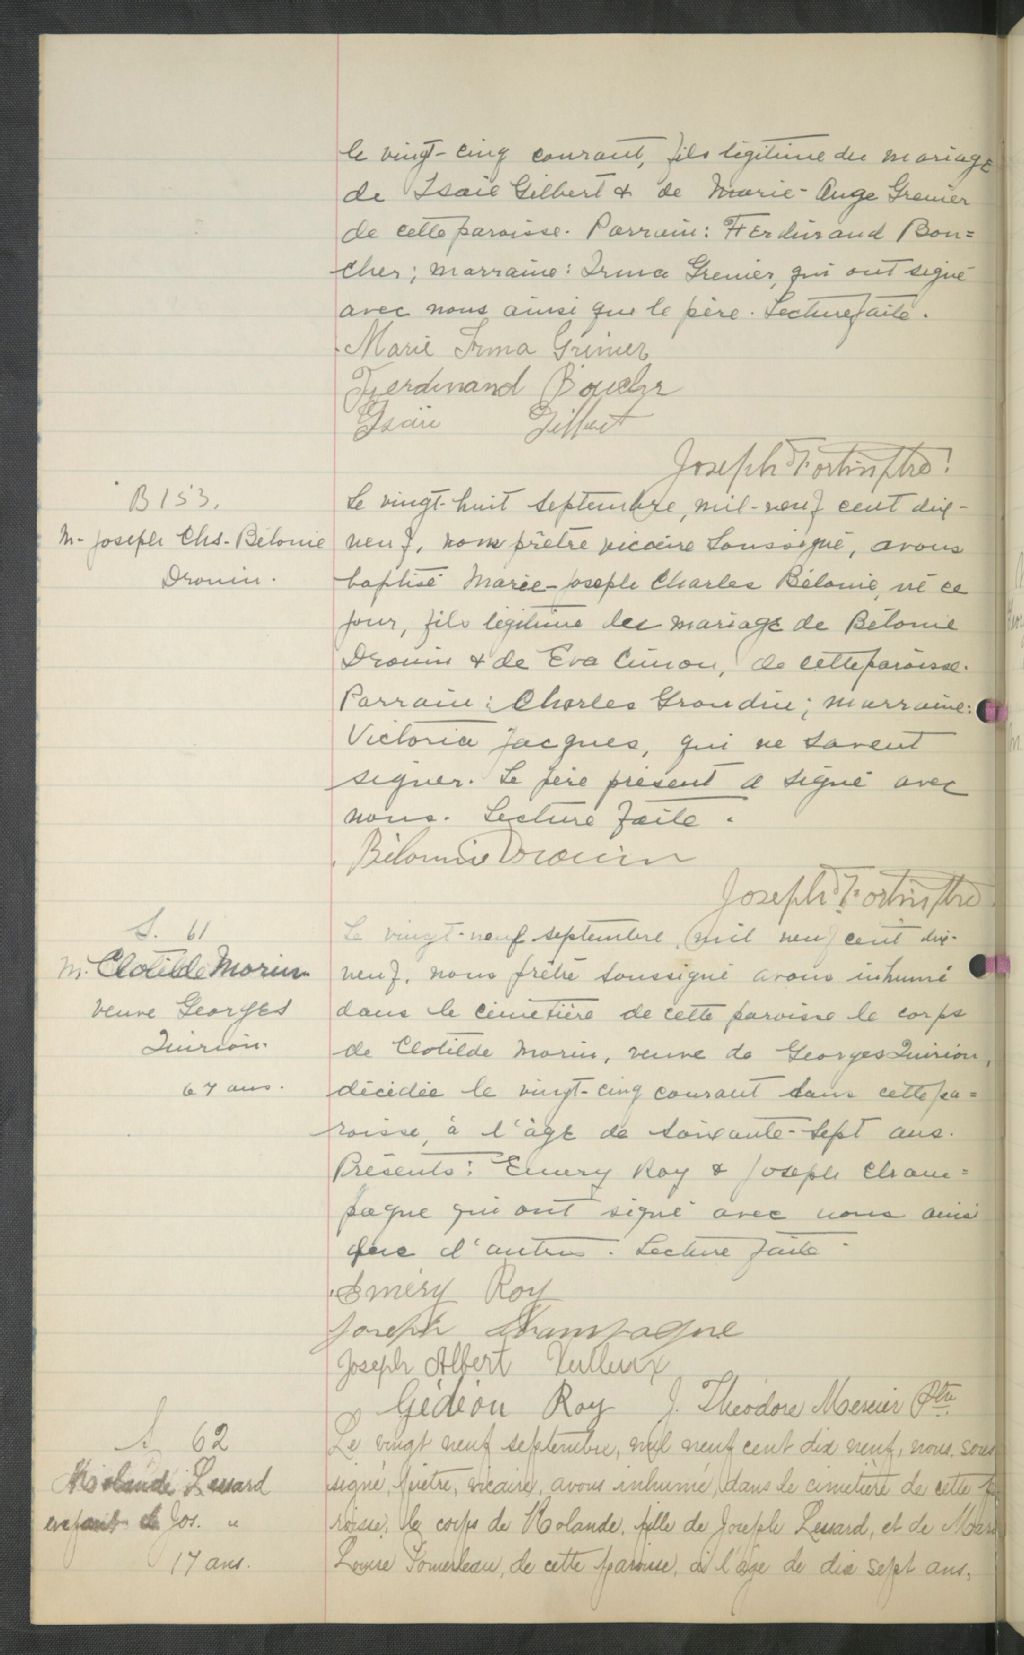 le vingt-cinq courant, fils légitime du mariage
de Isaïe Gilbert & de Marie-Ange Grenier
de cette paroisse. Parrain: Ferdinand Bou=
cher; marraine: Irma Grenier, qui ont signé
avec nous ainsi que le père. Lecture faite.
Marie Irma Grenier
Ferdinand Boucher
Isaïe Gilbert
Joseph Fortin ptre.
B 153.
M- Joseph Chs-Bélonie
Drouin.
Le vingt-huit septembre, mil-neuf cent dix-
neuf, nous prêtre vicaire soussigné, avons
baptisé Marie-Joseph Charles Bélonie, né ce
jour, fils légitime du mariage de Bélonie
Drouin & de Eva Cimon, de cette paroisse.
Parrain: Charles Grondin; marraine:
Victoria Jacques, qui ne savent
signer. Le père présent a signé avec
nous. Lecture faite.
Bélonnie Drouin
Joseph Fortin ptre
S. 61
M. Clotilde Morin
veuve Georges
Quirion.
67 ans.
Le vingt-neuf septembre, mil neuf cent dix-
neuf, nous prêtre soussigné avons inhumé
dans le cimetière de cette paroisse le corps
de Clotilde Morin, veuve de Georges Quirion,
décédée le vingt-cinq courant dans cette pa=
roisse, à l'âge de soixante-sept ans.
Présents: Emery Roy & Joseph Cham=
pagne qui ont signé avec nous ainsi
que d'autres. Lecture faite.
Eméry Roy
Joseph Champagne
Joseph Albert Veilleux
Gédéon Roy J. Théodore Mercier Ptre.
S 62
Rolande Lessard
enfant de Jos. "
17 ans.
Le vingt neuf septembre, mil neuf cent dix neuf, nous, sous
signé, prêtre, vicaire, avons inhumé, dans le cimetière de cette pa
roisse, le corps de Rolande, fille de Joseph Lessard, et de Marie
Louise Pomerleau, de cette paroisse, à l'âge de dix sept ans,